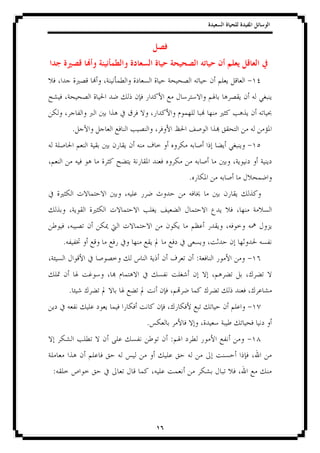 الوسائل المفيدة للحياة السعيدة
فصل
في العاقل يعلم أن حياته الصحيحة حياة السعادة والطمأنينة وأنها قصيرة جدا
١٤- العاقل يعلم أن حياته الصحيحة حياة السعادة والطمأنينة، وأنها قصيرة جدا، فلا
ينبغي له أن يقصرها بالهم والاسترسال مع الأكدار فإن ذلك ضد الحياة الصحيحة، فيشح
بحياته أن يذهب كثير منها نهبا للهموم والأكدار، ولا فرق في هذا بين البر والفاجر، ولكن
المؤمن له من التحقق بهذا الوصف الحظ الأوفر، والنصيب النافع العاجل والآجل.
١٥- وينبغي أيضا إذا أصابه مكروه أو خاف منه أن يقارن بين بقية النعم الحاصلة له
دينية أو دنيوية، وبين ما أصابه من مكروه فعند المقارنة يتضح كثرة ما هو فيه من النعم،
واضمحلال ما أصابه من المكاره.
وكذلك يقارن بين ما يخافه من حدوث ضرر عليه، وبين الاحتمالات الكثيرة في
السلامة منها، فلا يدع الاحتمال الضعيف يغلب الاحتمالات الكثيرة القوية، وبذلك
يزول همه وخوفه، ويقدر أعظم ما يكون من الاحتمالات التي يمكن أن تصيبه، فيوطن
نفسه لحدوثها إن حدثت، ويسعى في دفع ما لم يقع منها وفي رفع ما وقع أو تخفيفه.
١٦- ومن الأمور النافعة: أن تعرف أن أذية الناس لك وخصوصا في الأقوال السيئة،
لا تضرك، بل تضرهم، إلا إن أشغلت نفسك في الاهتمام بها، وسوغت لها أن تملك
مشاعرك، فعند ذلك تضرك كما ضرتهم، فإن أنت لم تضع لها بالا لم تضرك شيئا.
١٧- واعلم أن حياتك تبع لأفكارك، فإن كانت أفكارا فيما يعود عليك نفعه في دين
أو دنيا فحياتك طيبة سعيدة، وإلا فالأمر بالعكس.
١٨- ومن أنفع الأمور لطرد الهم: أن توطن نفسك على أن لا تطلب الشكر إلا
من الله، فإذا أحسنت إلى من له حق عليك أو من ليس له حق فاعلم أن هذا معاملة
منك مع الله، فلا تبال بشكر من أنعمت عليه، كما قال تعالى في حق خواص خلقه:
١٦